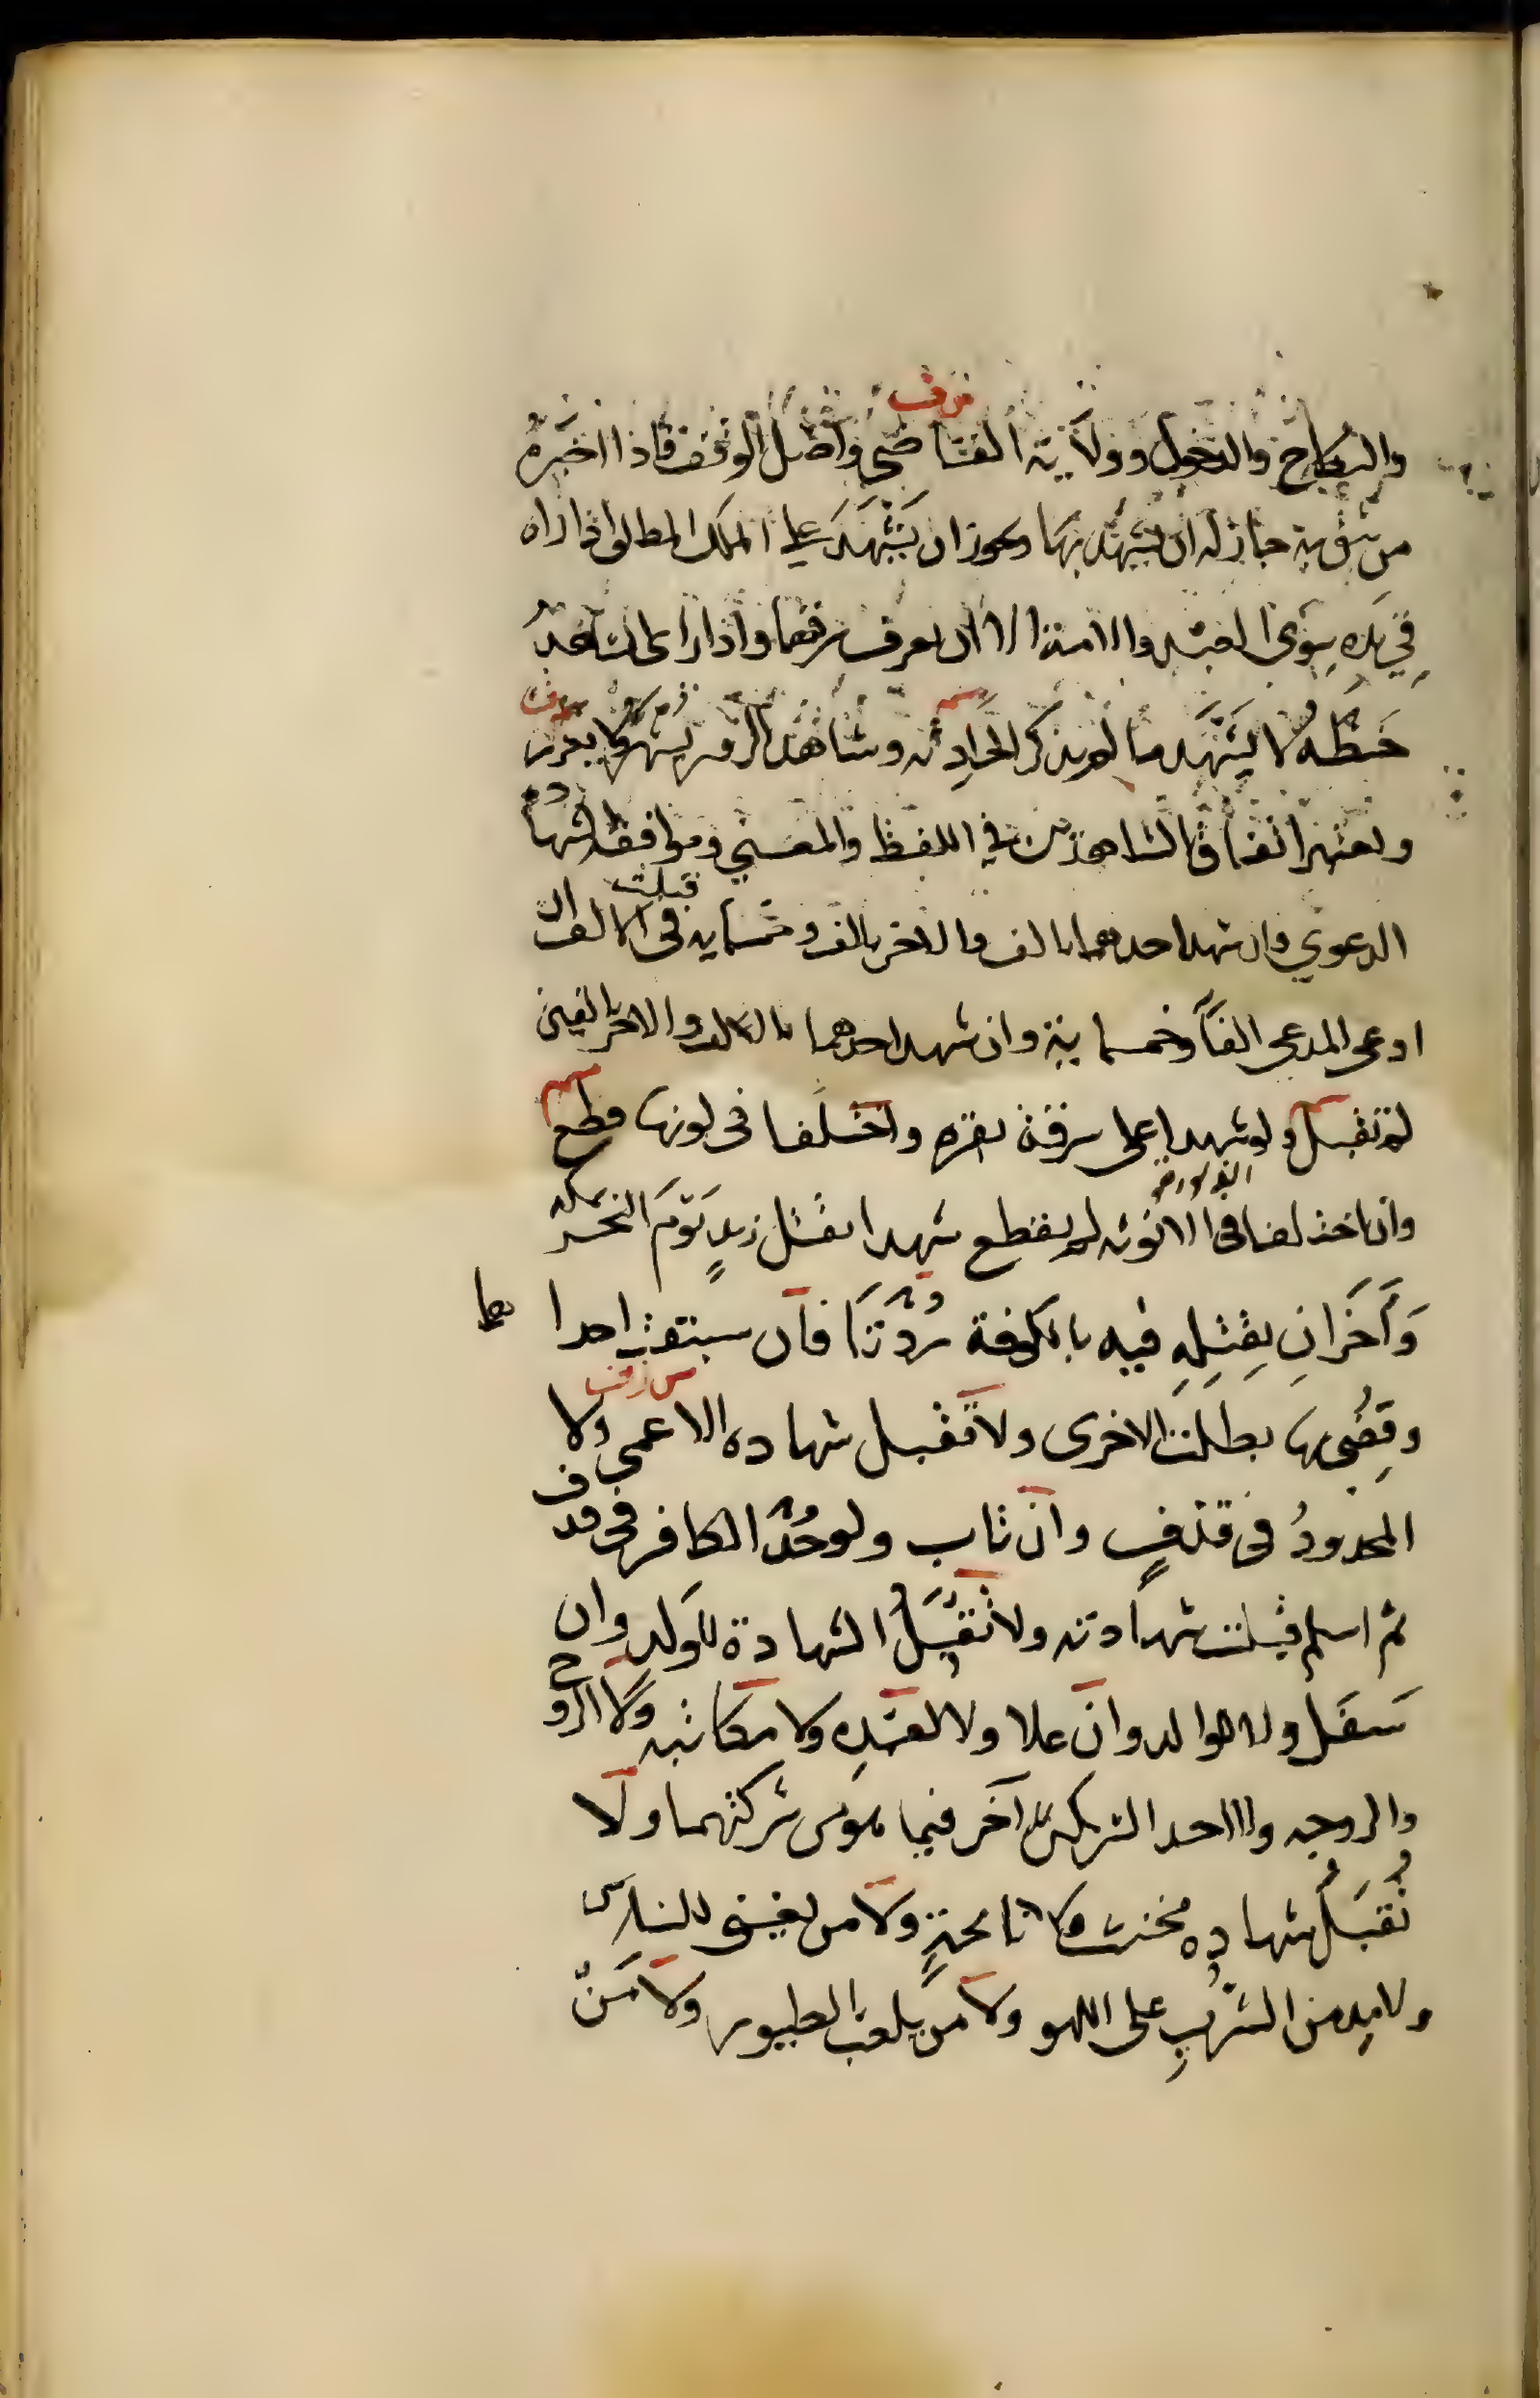 والنكاح والدخول وولاية القاضي واصل الوقف فاذا اخبره
من يثق به جاز له ان يشهد بها ويجوز ان يشهد على الملك المطلق اذا راه
في يده سوى العبد والامة الا ان يعرف رقهما واذا راى الشاهد
خطه لا يشهد ما لم يذكر الحادثة وشاهد الزور يشهر ولا يعزر
ويعتبر اتفاق الشاهدين في اللفظ والمعنى وموافقة الشهادة
الدعوى وان شهد احدهما بالف والاخر بالف وخمسمايه قبلت في الالف ان
ادعى المدعي الفًا وخمسماية وان شهد احدهما بالالف والاخر بالفين
لم تقبل ولو شهدا على سرقة بقرة واختلفا في لونها قطع
وان اختلفا في الانوثه لم يقطع شهدا بقتل زيدٍ يومَ النحر بمكه
وَآخَرانِ بقتلِهِ فيه بالكوفة رُدَّتَا فان سبقت احداهما
وقُضِي بها بطلت الاخرى ولا تقبل شهاده الاعمى ولا
المحدودُ في قذفٍ وان تاب ولو حُدَّ الكافر في قذف
ثم اسلم قبلت شهادته ولا تُقبَلُ الشهادة للولد وان
سَفَل ولا للوالد وان علا ولا لعبدِه ولا مكاتبه ولا الزوج
والزوجه ولا احد الشريكين للآخر فيما هو من شركتهما ولا
تُقبَلُ شهاده مخنث ولا نائحةٍ ولا من يغني للناس
ولا مدمن الشربِ على اللهو ولا من يلعب بالطيور ولا مَنْ